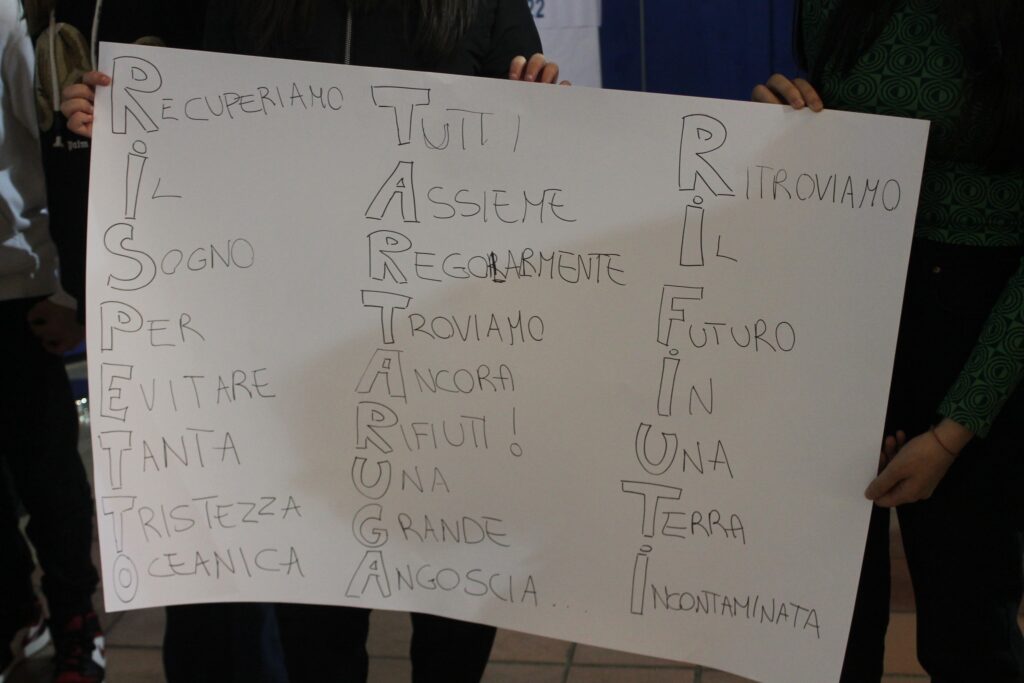 RECUPERIAMO
IL
SOGNO
PER
EVITARE
TANTA
TRISTEZZA
OCEANICA
TUTTI
ASSIEME
REGOLARMENTE
TROVIAMO
ANCORA
RIFIUTI!
UNA
GRANDE
ANGOSCIA....
RITROVIAMO
IL
FUTURO
IN
UNA
TERRA
INCONTAMINATA
22
Palm